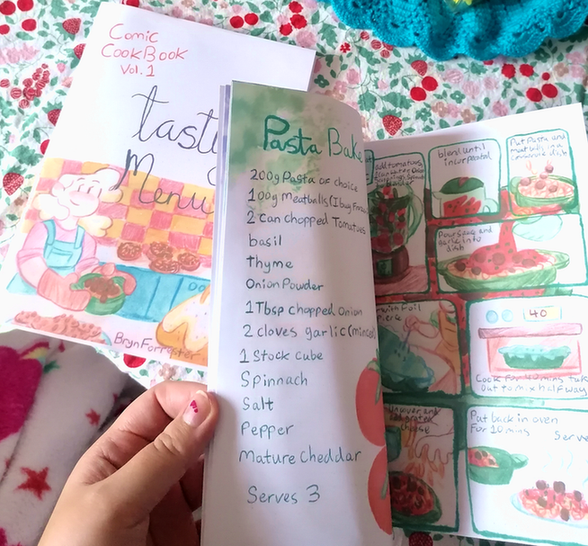 Comic
CookBook
Vol. 1
tasty
Menu
Bryn Forrester
Pasta Bake
200g Pasta of choice
100g Meatballs (I buy
2 Can chopped Tomatoes
basil
Thyme
Onion Powder
1 Tbsp chopped onion
2 cloves garlic (minced)
1 Stock cube
Spinnach
Salt
Pepper
Mature Cheddar
Serves 3
add tomatoes,
blend until
incorperated
Put Pasta and
meatballs in a
dish
Pour sauce and
dish
with foil
40
Cook For 40 mins take
Out to mix halfway
cheese
Put back in oven
For 10 mins
Serv